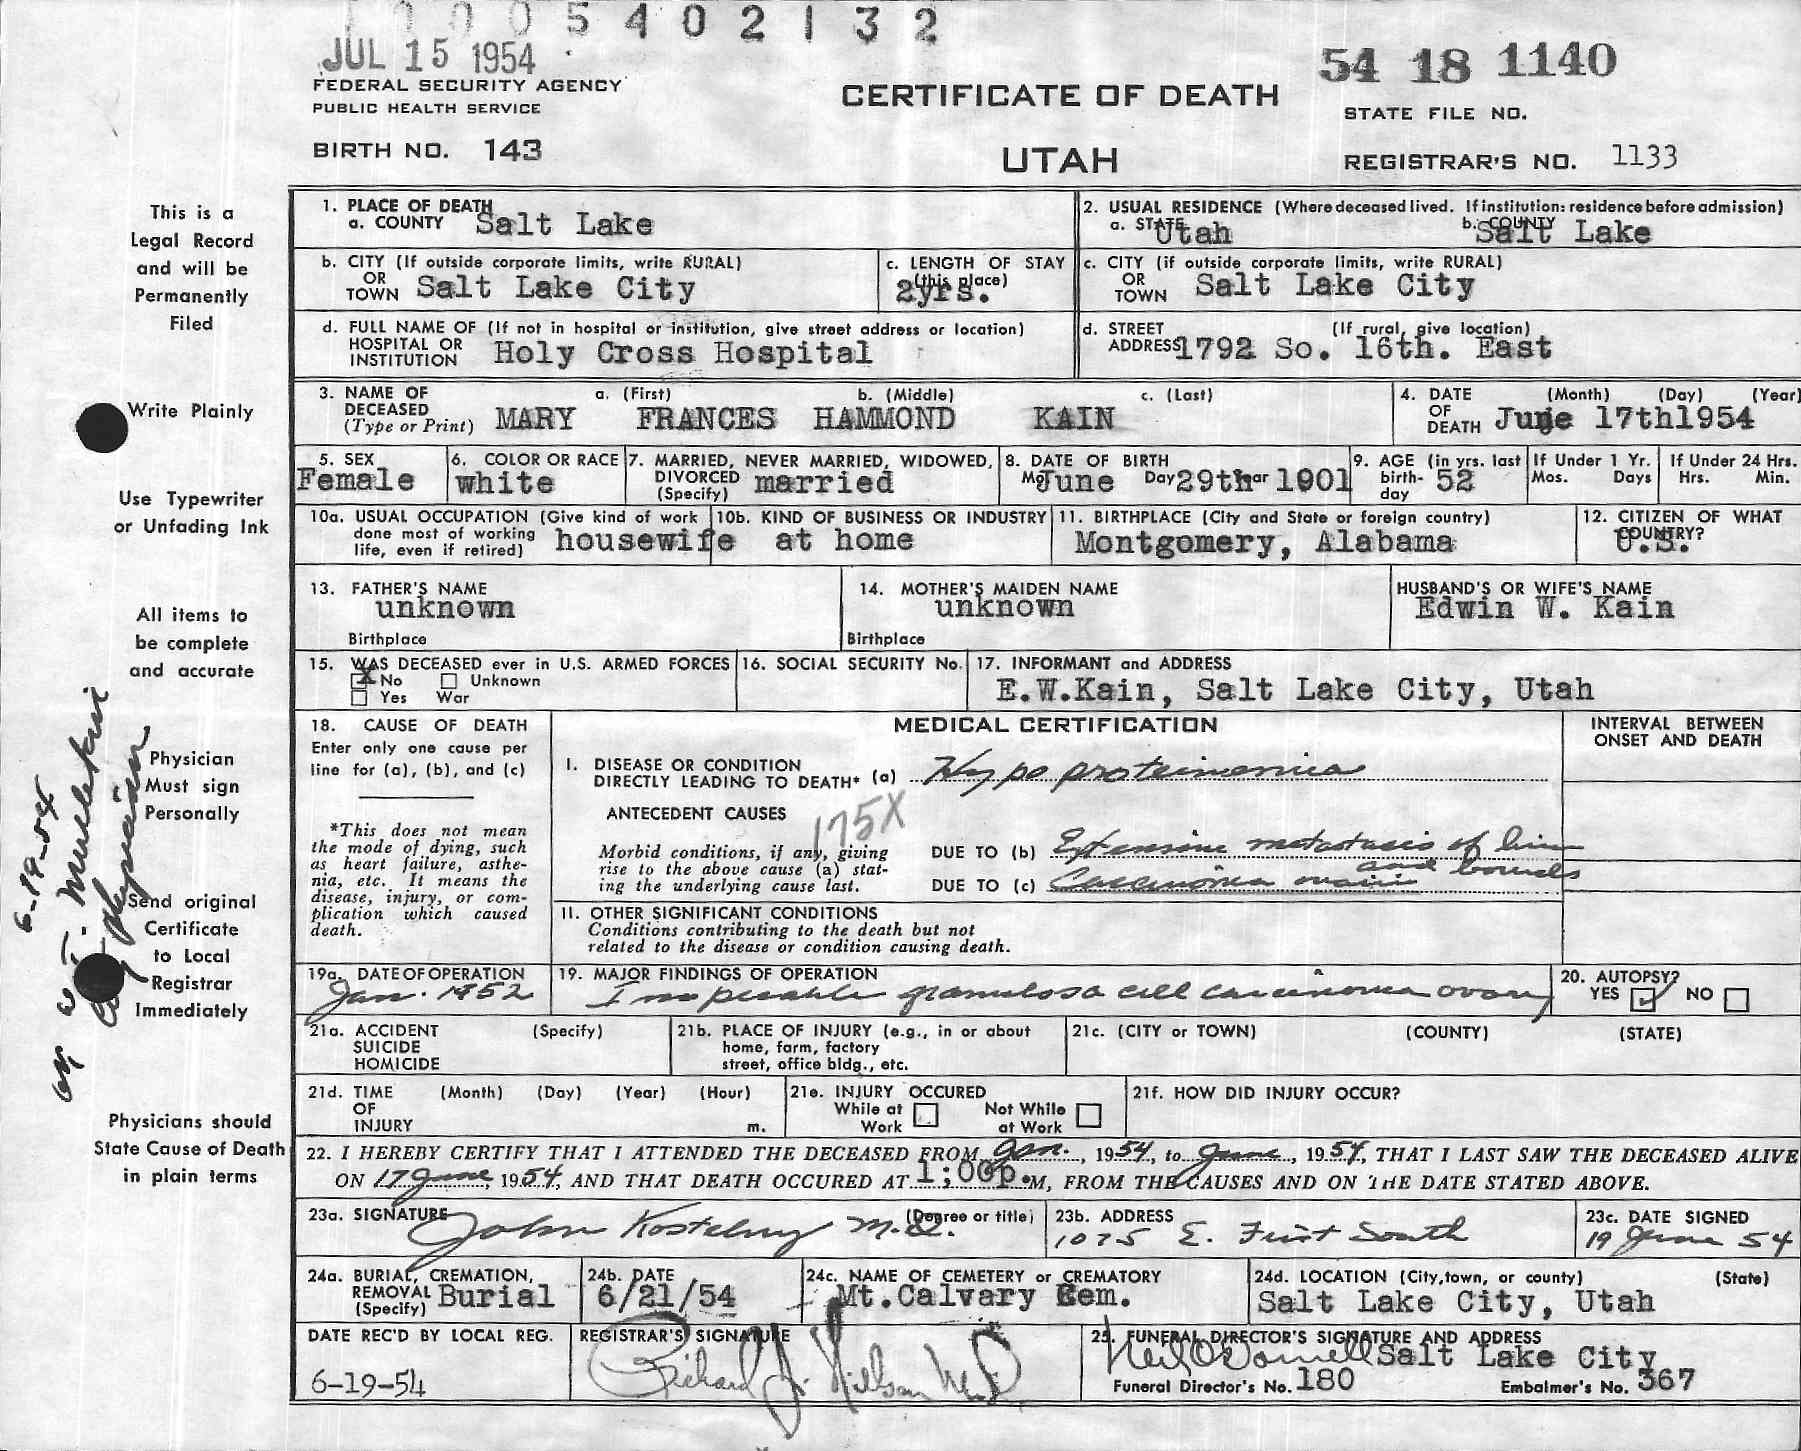 5 4 0 2 1 3 2
JUL 15 1954
54 18 1140
FEDERAL SECURITY AGENCY
PUBLIC HEALTH SERVICE
CERTIFICATE OF DEATH
STATE FILE NO.
BIRTH NO. 143
UTAH
REGISTRAR'S NO. 1133
This is a
Legal Record
and will be
Permanently
Filed
Write Plainly
Use Typewriter
or Unfading Ink
All items to
be complete
and accurate
Physician
Must sign
Personally
Send original
Certificate
to Local
Registrar
Immediately
Physicians should
State Cause of Death
in plain terms
6-19-54
1. PLACE OF DEATH
a. COUNTY Salt Lake
2. USUAL RESIDENCE (Where deceased lived. If institution: residence before admission)
a. STATE Utah b. COUNTY Salt Lake
b. CITY (If outside corporate limits, write RURAL)
OR
TOWN Salt Lake City
c. LENGTH OF STAY
(this place)
2yrs.
c. CITY (if outside corporate limits, write RURAL)
OR
TOWN Salt Lake City
d. FULL NAME OF (If not in hospital or institution, give street address or location)
HOSPITAL OR
INSTITUTION Holy Cross Hospital
d. STREET (If rural, give location)
ADDRESS 1792 So. 16th. East
3. NAME OF a. (First) b. (Middle) c. (Last)
DECEASED
(Type or Print) MARY FRANCES HAMMOND KAIN
4. DATE (Month) (Day) (Year)
OF
DEATH June 17th1954
5. SEX
Female
6. COLOR OR RACE
white
7. MARRIED, NEVER MARRIED, WIDOWED,
DIVORCED
(Specify) married
8. DATE OF BIRTH
June Day 29th 1901
9. AGE (in yrs. last
birth-
day 52
If Under 1 Yr.
Mos. Days
If Under 24 Hrs.
Hrs. Min.
10a. USUAL OCCUPATION (Give kind of work
done most of working
life, even if retired) housewife
10b. KIND OF BUSINESS OR INDUSTRY
at home
11. BIRTHPLACE (City and State or foreign country)
Montgomery, Alabama
12. CITIZEN OF WHAT
COUNTRY?
U.S.
13. FATHER'S NAME
unknown
Birthplace
14. MOTHER'S MAIDEN NAME
unknown
Birthplace
HUSBAND'S OR WIFE'S NAME
Edwin W. Kain
15. WAS DECEASED ever in U.S. ARMED FORCES
X No Unknown
Yes War
16. SOCIAL SECURITY No.
17. INFORMANT and ADDRESS
E.W.Kain, Salt Lake City, Utah
18. CAUSE OF DEATH
Enter only one cause per
line for (a), (b), and (c)
*This does not mean
the mode of dying, such
as heart failure, asthe-
nia, etc. It means the
disease, injury, or com-
plication which caused
death.
MEDICAL CERTIFICATION
INTERVAL BETWEEN
ONSET AND DEATH
I. DISEASE OR CONDITION
DIRECTLY LEADING TO DEATH* (a) Hypoproteinemia
ANTECEDENT CAUSES
175X
Morbid conditions, if any, giving
rise to the above cause (a) stat-
ing the underlying cause last.
DUE TO (b) Extensive metastasis of liver
and bowels
DUE TO (c) Carcinoma ovarii
II. OTHER SIGNIFICANT CONDITIONS
Conditions contributing to the death but not
related to the disease or condition causing death.
19a. DATE OF OPERATION
Jan. 1952
19. MAJOR FINDINGS OF OPERATION
Inoperable granulosa cell carcinoma ovary
20. AUTOPSY?
YES NO
21a. ACCIDENT (Specify)
SUICIDE
HOMICIDE
21b. PLACE OF INJURY (e.g., in or about
home, farm, factory
street, office bldg., etc.
21c. (CITY or TOWN) (COUNTY) (STATE)
21d. TIME (Month) (Day) (Year) (Hour)
OF
INJURY m.
21e. INJURY OCCURED
While at Not While
Work at Work
21f. HOW DID INJURY OCCUR?
22. I HEREBY CERTIFY THAT I ATTENDED THE DECEASED FROM Jan., 1954, to June, 1954, THAT I LAST SAW THE DECEASED ALIVE
ON 17 June, 1954, AND THAT DEATH OCCURED AT 1;00p.M, FROM THE CAUSES AND ON THE DATE STATED ABOVE.
23a. SIGNATURE (Degree or title)
John Kostelny M.D.
23b. ADDRESS
1075 E. First South
23c. DATE SIGNED
19 June 54
24a. BURIAL, CREMATION,
REMOVAL
(Specify) Burial
24b. DATE
6/21/54
24c. NAME OF CEMETERY or CREMATORY
Mt.Calvary Cem.
24d. LOCATION (City,town, or county) (State)
Salt Lake City, Utah
DATE REC'D BY LOCAL REG.
6-19-54
REGISTRAR'S SIGNATURE
Richard J. Nielson M.D.
25. FUNERAL DIRECTOR'S SIGNATURE AND ADDRESS
Neil O'Donnell Salt Lake City
Funeral Director's No. 180 Embalmer's No. 367